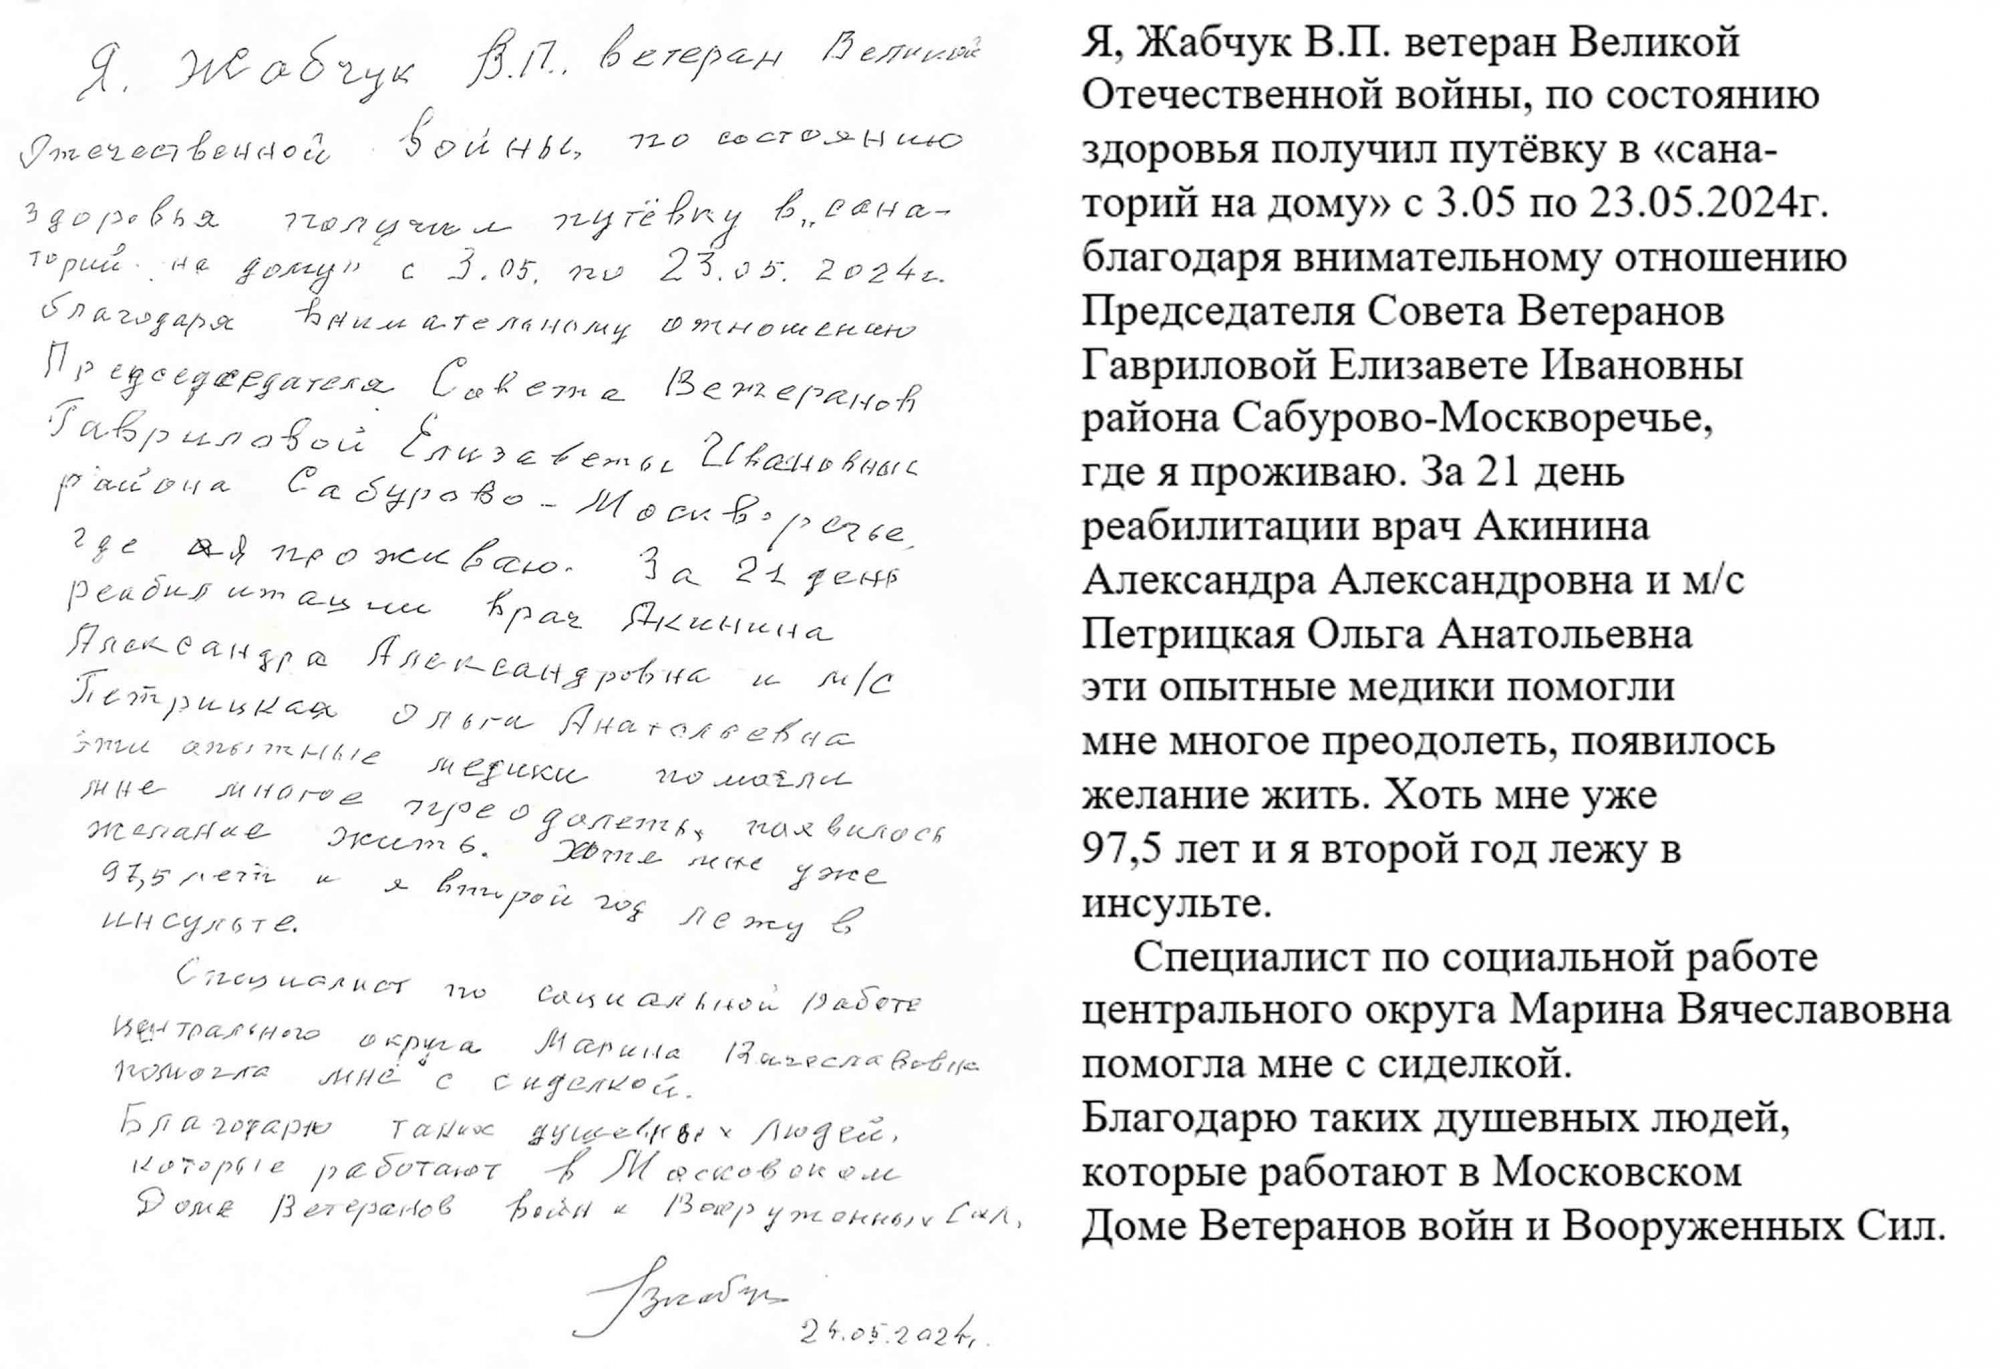 Я, Жабчук В.П., ветеран Великой
Отечественной войны, по состоянию
здоровья получил путёвку в „сана-
торий на дому" с 3.05. по 23.05.2024г.
благодаря внимательному отношению
Председателя Совета Ветеранов
Гавриловой Елизаветы Ивановны
района Сабурово-Москворечье,
где я проживаю. За 21 день
реабилитации врач Акинина
Александра Александровна и м/с
Петрицкая Ольга Анатольевна
эти опытные медики помогли
мне многое преодолеть, появилось
желание жить. Хотя мне уже
97,5 лет и я второй год лежу в
инсульте.
Специалист по социальной работе
центрального округа Марина Вячеславовна
помогла мне с сиделкой.
Благодарю таких душевных людей,
которые работают в Московском
Доме Ветеранов войн и Вооруженных Сил.
24.05.2024г.
Я, Жабчук В.П. ветеран Великой
Отечественной войны, по состоянию
здоровья получил путёвку в «сана-
торий на дому» с 3.05 по 23.05.2024г.
благодаря внимательному отношению
Председателя Совета Ветеранов
Гавриловой Елизавете Ивановны
района Сабурово-Москворечье,
где я проживаю. За 21 день
реабилитации врач Акинина
Александра Александровна и м/с
Петрицкая Ольга Анатольевна
эти опытные медики помогли
мне многое преодолеть, появилось
желание жить. Хоть мне уже
97,5 лет и я второй год лежу в
инсульте.
Специалист по социальной работе
центрального округа Марина Вячеславовна
помогла мне с сиделкой.
Благодарю таких душевных людей,
которые работают в Московском
Доме Ветеранов войн и Вооруженных Сил.